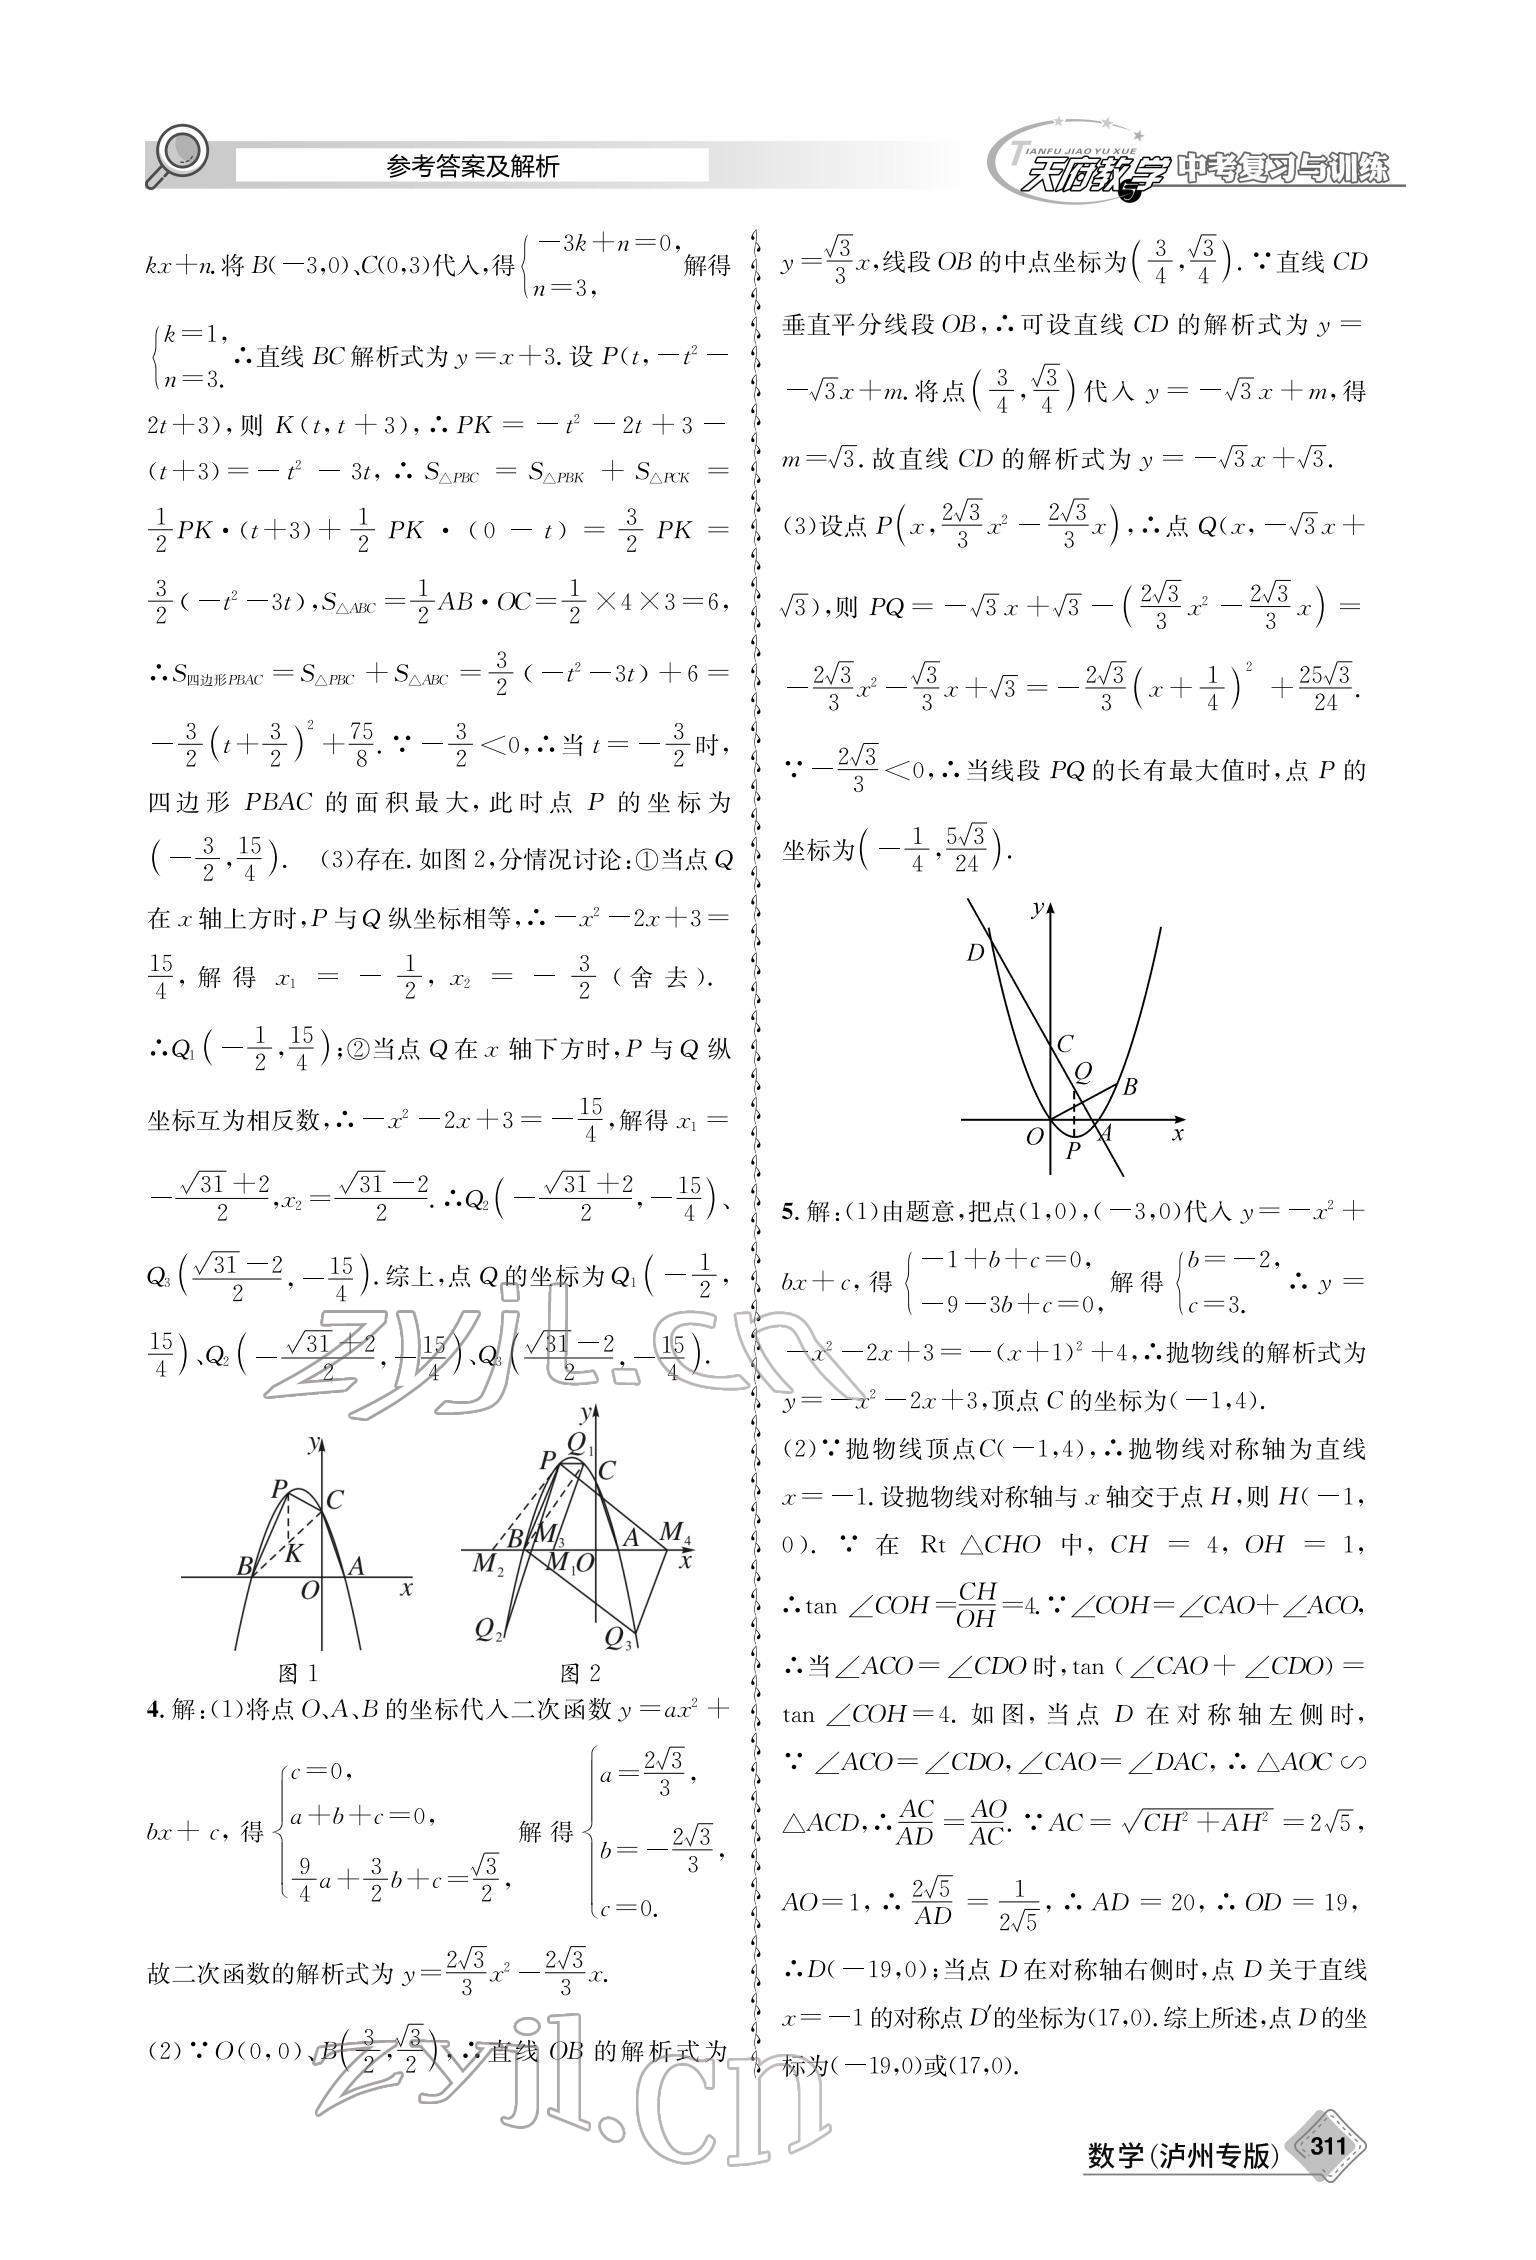 参考答案及解析
TIANFU JIAO YU XUE
天府教与学 中考复习与训练
kx+n.将B(-3,0)、C(0,3)代入,得{-3k+n=0, n=3, 解得
{k=1, n=3. ∴直线BC解析式为y=x+3.设P(t,-t²-
2t+3),则K(t,t+3),∴PK=-t²-2t+3-
(t+3)=-t²-3t,∴S△PBC=S△PBK+S△PCK=
1/2PK·(t+3)+1/2PK·(0-t)=3/2PK=
3/2(-t²-3t),S△ABC=1/2AB·OC=1/2×4×3=6,
∴S四边形PBAC=S△PBC+S△ABC=3/2(-t²-3t)+6=
-3/2(t+3/2)²+75/8.∵-3/2<0,∴当t=-3/2时,
四边形PBAC的面积最大,此时点P的坐标为
(-3/2,15/4). (3)存在.如图2,分情况讨论:①当点Q
在x轴上方时,P与Q纵坐标相等,∴-x²-2x+3=
15/4,解得x₁=-1/2,x₂=-3/2(舍去).
∴Q₁(-1/2,15/4);②当点Q在x轴下方时,P与Q纵
坐标互为相反数,∴-x²-2x+3=-15/4,解得x₁=
-(√31+2)/2,x₂=(√31-2)/2.∴Q₂(-(√31+2)/2,-15/4)、
Q₃((√31-2)/2,-15/4).综上,点Q的坐标为Q₁(-1/2,
15/4)、Q₂(-(√31+2)/2,-15/4)、Q₃((√31-2)/2,-15/4).
y P C K B O A x
图1
y Q₁ P C B M₃ A M₄ M₂ M₁ O x Q₂ Q₃
图2
4.解:(1)将点O、A、B的坐标代入二次函数y=ax²+
bx+c,得{c=0, a+b+c=0, 9/4a+3/2b+c=√3/2, 解得{a=2√3/3, b=-2√3/3, c=0.
故二次函数的解析式为y=2√3/3x²-2√3/3x.
(2)∵O(0,0)、B(3/2,√3/2),∴直线OB的解析式为
y=√3/3x,线段OB的中点坐标为(3/4,√3/4).∵直线CD
垂直平分线段OB,∴可设直线CD的解析式为y=
-√3x+m.将点(3/4,√3/4)代入y=-√3x+m,得
m=√3.故直线CD的解析式为y=-√3x+√3.
(3)设点P(x,2√3/3x²-2√3/3x),∴点Q(x,-√3x+
√3),则PQ=-√3x+√3-(2√3/3x²-2√3/3x)=
-2√3/3x²-√3/3x+√3=-2√3/3(x+1/4)²+25√3/24.
∵-2√3/3<0,∴当线段PQ的长有最大值时,点P的
坐标为(-1/4,5√3/24).
y D C Q B O P A x
5.解:(1)由题意,把点(1,0),(-3,0)代入y=-x²+
bx+c,得{-1+b+c=0, -9-3b+c=0, 解得{b=-2, c=3. ∴y=
-x²-2x+3=-(x+1)²+4,∴抛物线的解析式为
y=-x²-2x+3,顶点C的坐标为(-1,4).
(2)∵抛物线顶点C(-1,4),∴抛物线对称轴为直线
x=-1.设抛物线对称轴与x轴交于点H,则H(-1,
0).∵在Rt△CHO中,CH=4,OH=1,
∴tan∠COH=CH/OH=4.∵∠COH=∠CAO+∠ACO,
∴当∠ACO=∠CDO时,tan(∠CAO+∠CDO)=
tan∠COH=4.如图,当点D在对称轴左侧时,
∵∠ACO=∠CDO,∠CAO=∠DAC,∴△AOC∽
△ACD,∴AC/AD=AO/AC.∵AC=√(CH²+AH²)=2√5,
AO=1,∴2√5/AD=1/2√5,∴AD=20,∴OD=19,
∴D(-19,0);当点D在对称轴右侧时,点D关于直线
x=-1的对称点D′的坐标为(17,0).综上所述,点D的坐
标为(-19,0)或(17,0).
zyjl.cn
zyjl.cn
数学(泸州专版) 311